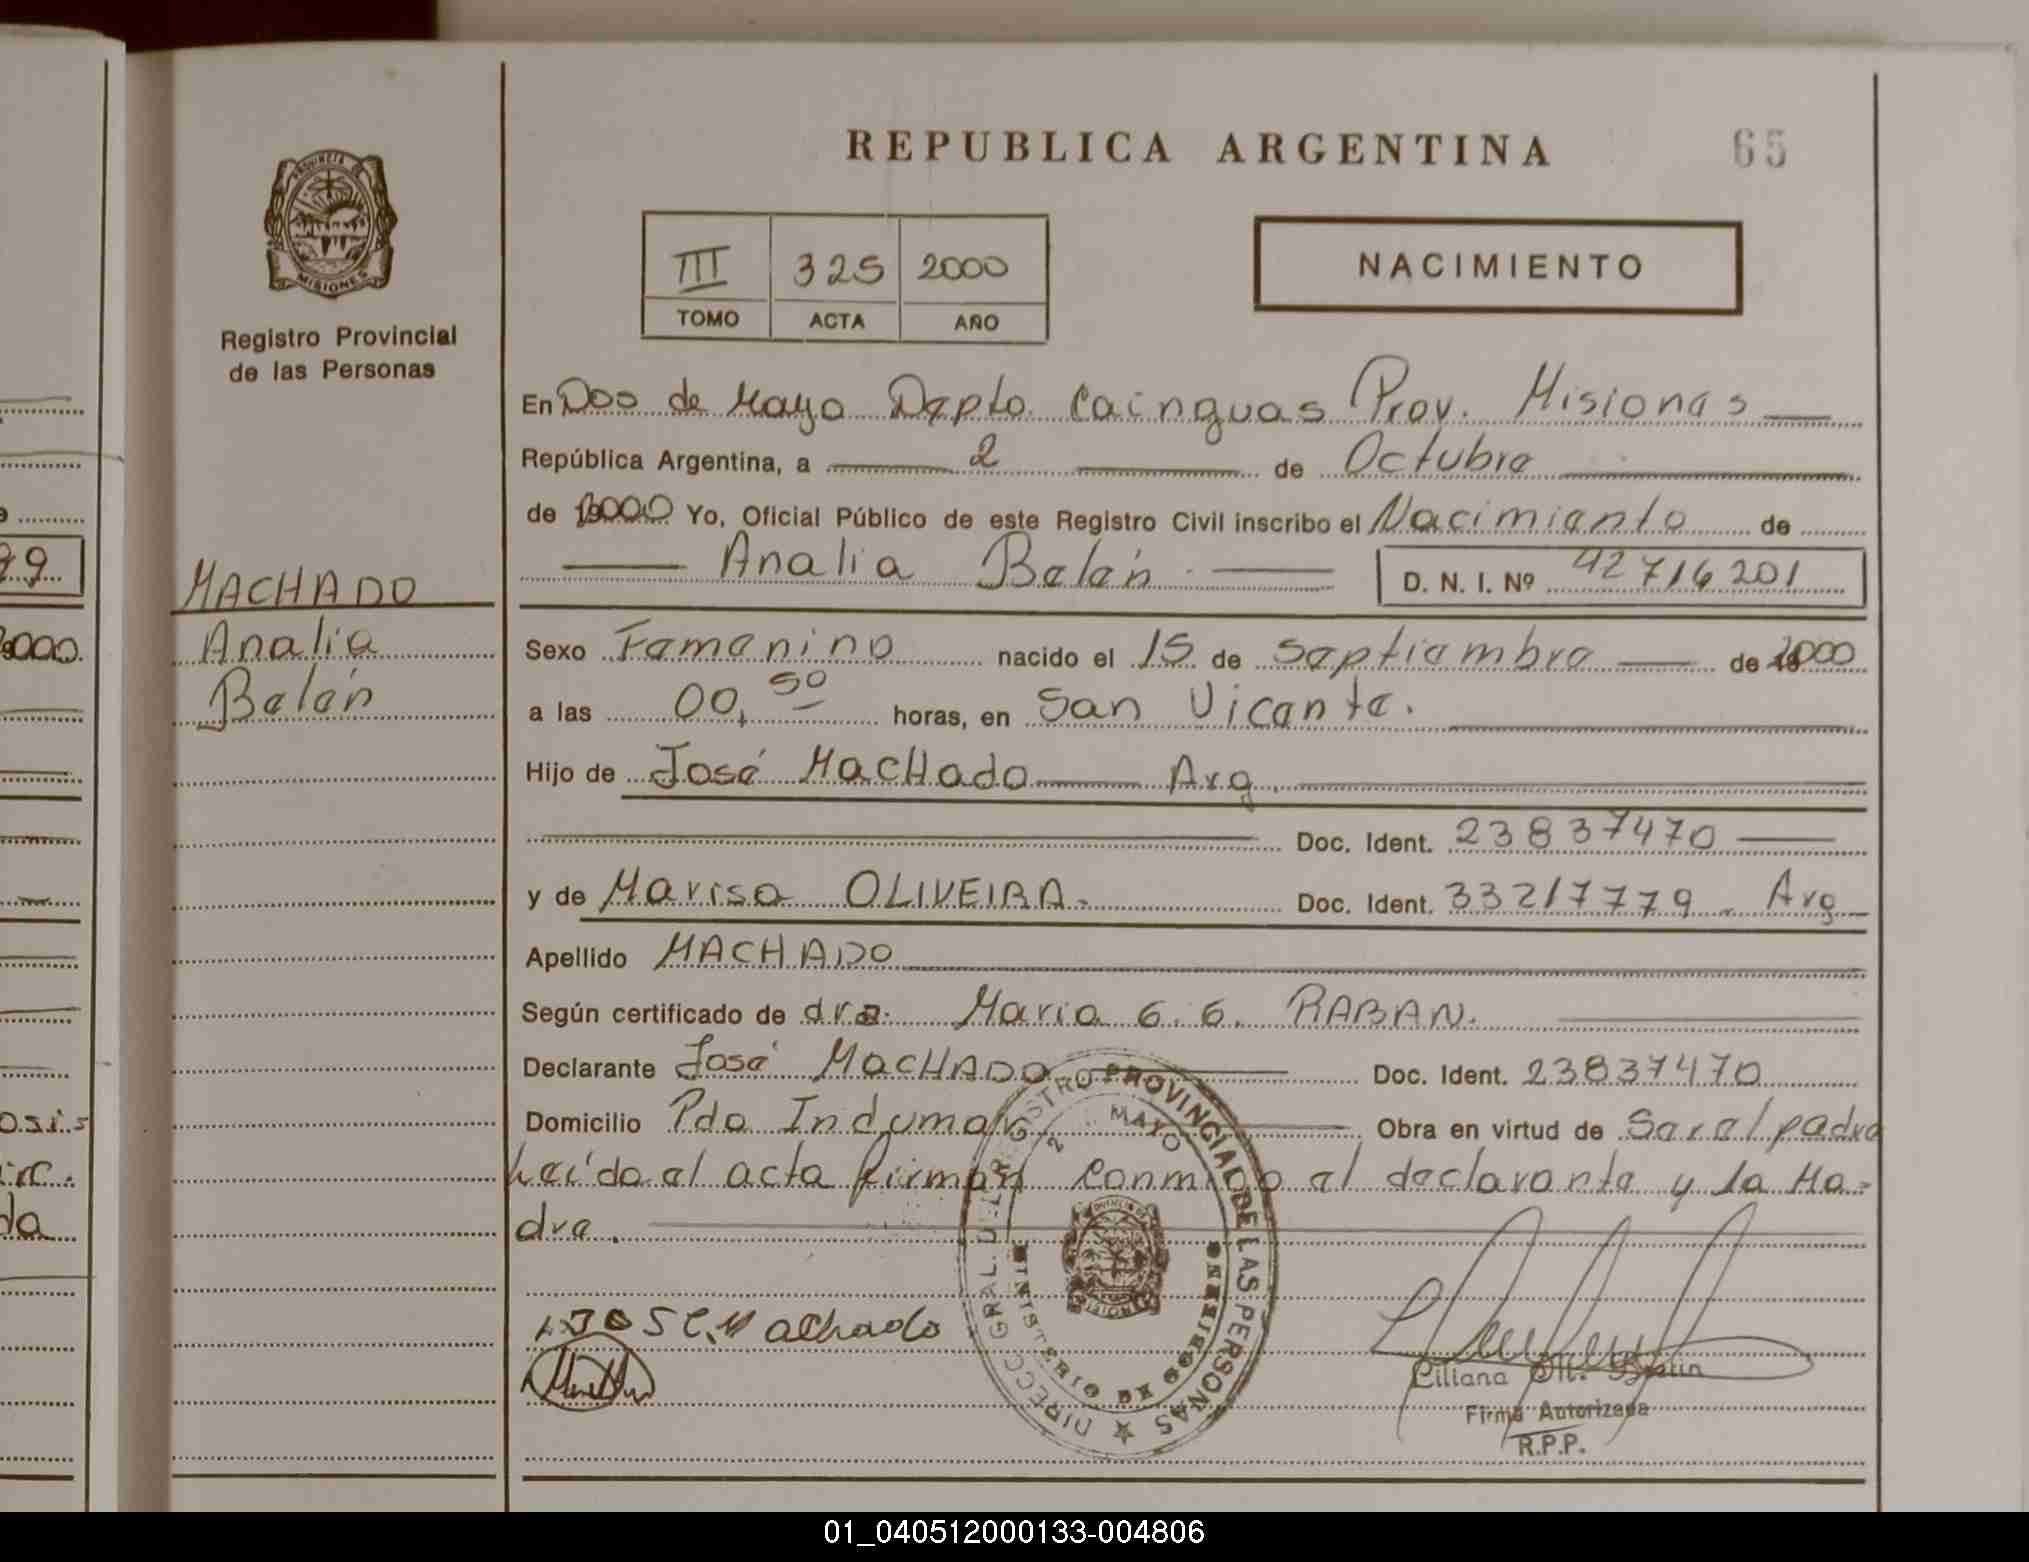 REPUBLICA ARGENTINA
65
PROVINCIA DE
MISIONES
Registro Provincial
de las Personas
III 325 2000
TOMO ACTA AÑO
NACIMIENTO
En Dos de Mayo Depto. Cainguas Prov. Misiones
República Argentina, a 2 de Octubre
de 2000 Yo, Oficial Público de este Registro Civil inscribo el Nacimiento de
Analia Belén D. N. I. Nº 42716201
MACHADO
Analia
Belén
Sexo Femenino nacido el 15 de Septiembre de 2000
a las 00,50 horas, en San Vicente.
Hijo de José Machado Arg.
Doc. Ident. 23837470
y de Marisa OLIVEIRA. Doc. Ident. 33217779. Arg
Apellido MACHADO
Según certificado de dra. Maria G. G. RABAN.
Declarante José MACHADO Doc. Ident. 23837470
Domicilio Pdo Indumar Obra en virtud de Ser el padre
Leída el acta firman conmigo el declarante y la Ma=
dre.
JOSE Machado
DIRECC. GRAL. DEL REGISTRO PROVINCIAL DE LAS PERSONAS
2 MAYO
MINISTERIO DE GOBIERNO
Liliana M.
Firma Autorizada
R.P.P.
99
2000
01_040512000133-004806